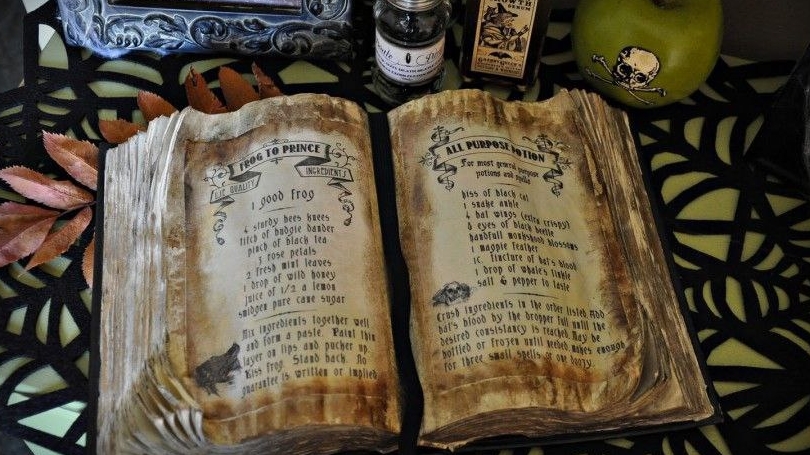 FROG TO PRINCE
QUALITY INGREDIENTS
1 good frog
4 sturdy bees knees
titch of budgie dander
pinch of black tea
3 rose petals
2 fresh mint leaves
1 drop of wild honey
juice of 1/2 a lemon
smidgen pure cane sugar
Mix ingredients together well
and form a paste. Paint thin
layer on lips and pucher up.
Kiss frog. Stand back. No
guarantee is written or implied
ALL PURPOSE POTION
For most general purpose
potions and spells
kiss of black cat
1 snake ankle
4 bat wings (extra crispy)
8 eyes of black beetle
handfull monkshood blossoms
1 magpie feather
1c. tincture of bat's blood
1 drop of whale's tinkle
salt & pepper to taste
Crush ingredients in the order listed. Add
bat's blood by the dropper full until the
desired consistancy is reached. May be
bottled or frozen until needed. makes enough
for three small spells or one doozy.